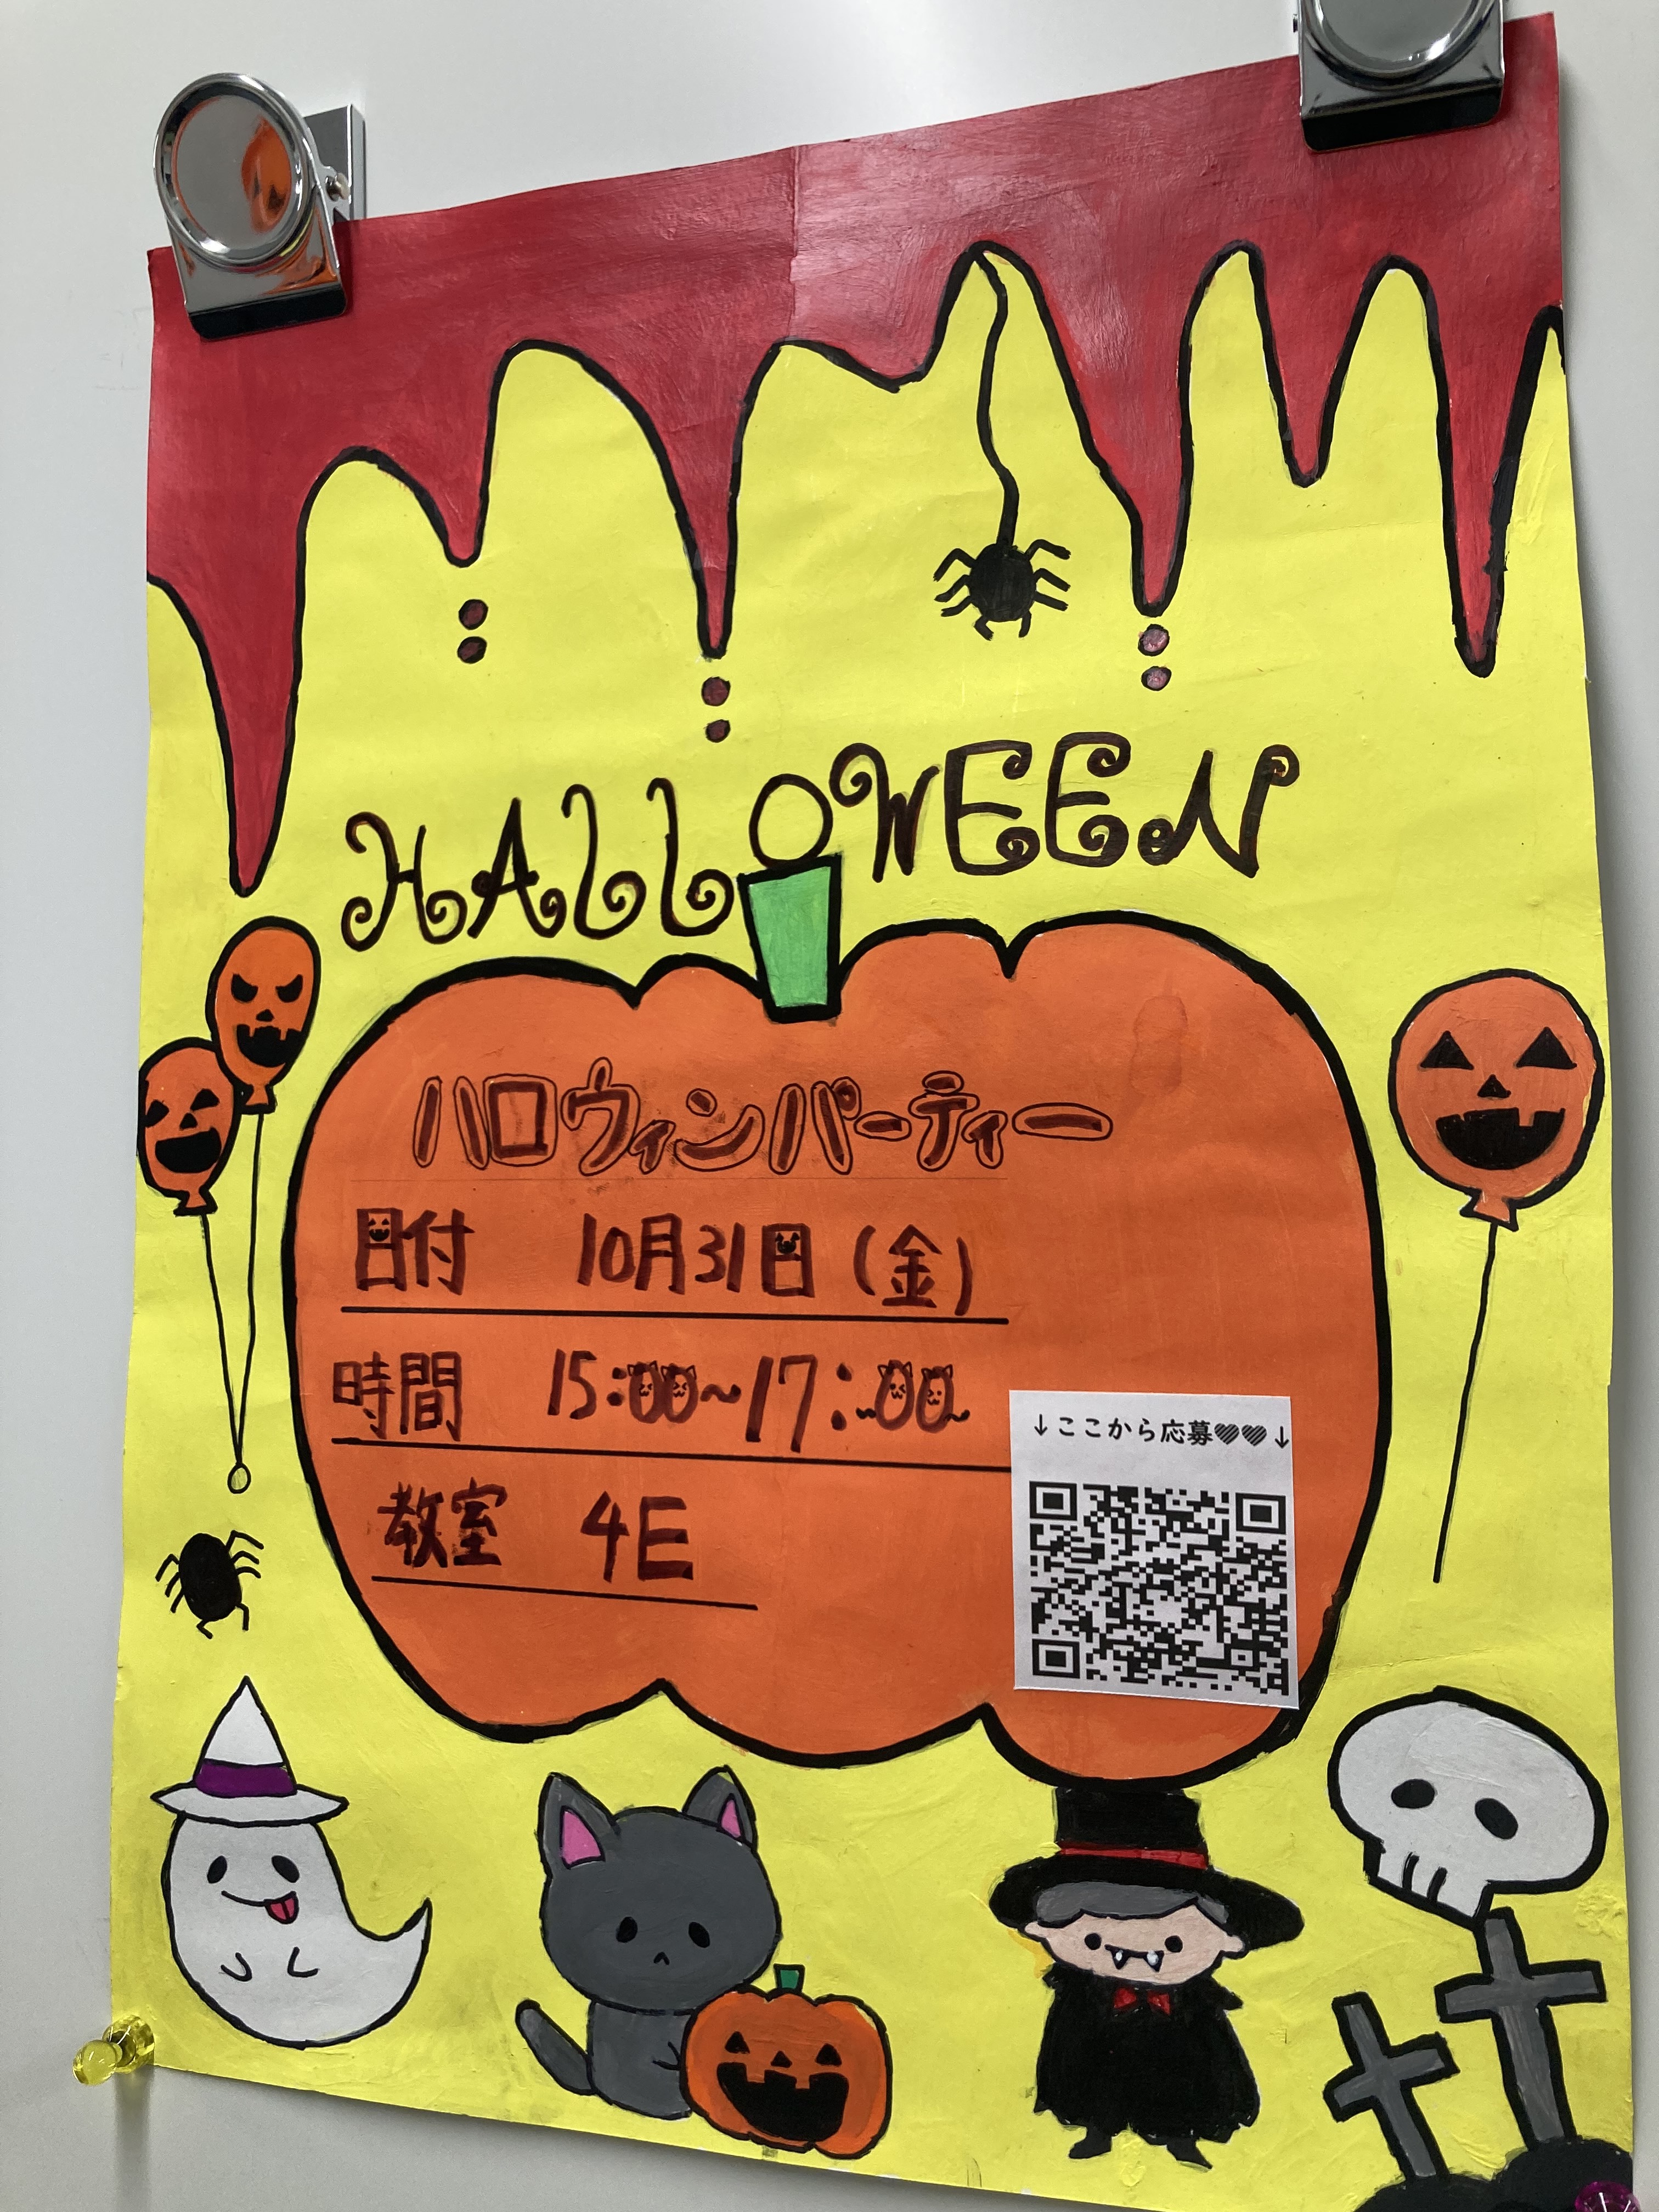 HALLOWEEN
ハロウィンパーティー
日付 10月31日(金)
時間 15:00~17:00
教室 4E
↓ここから応募♥♥↓